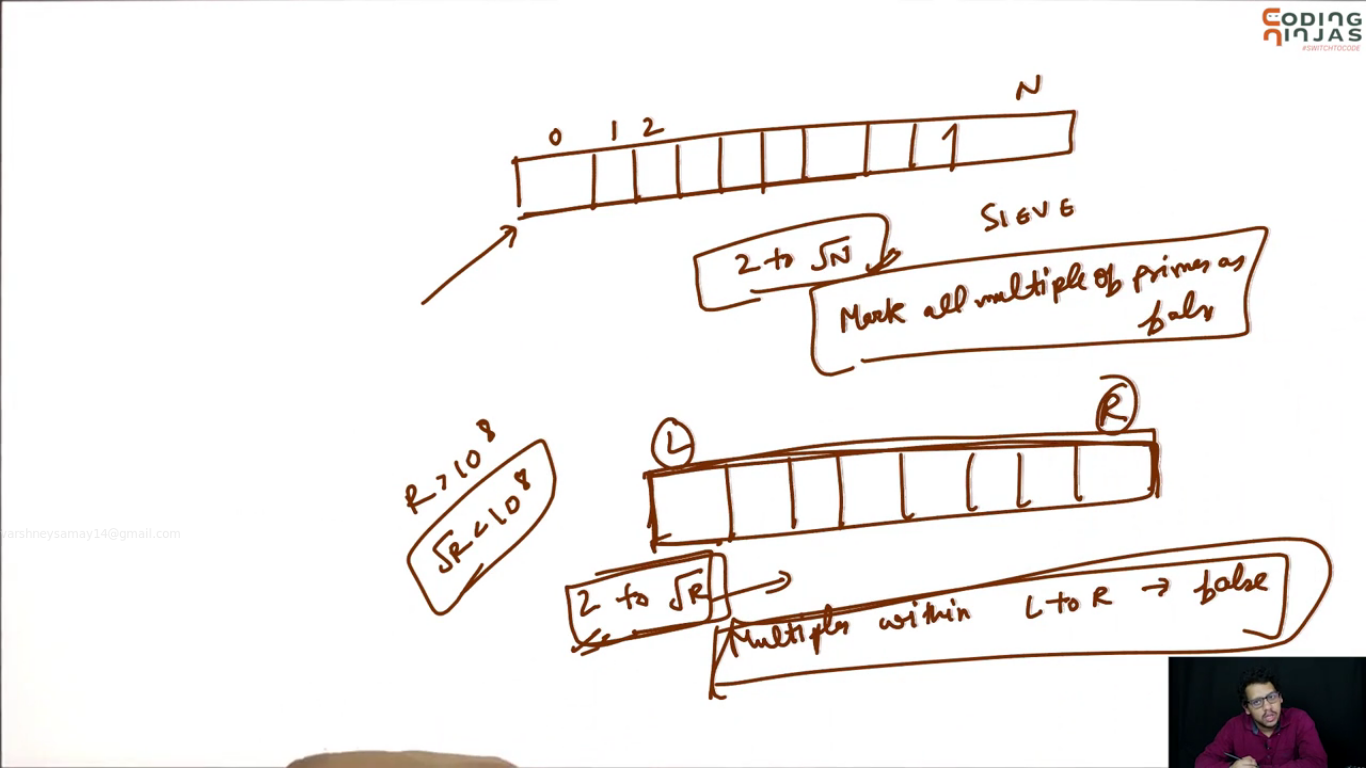 CODING
NINJAS
#SWITCHTOCODE
N
0 1 2
SIEVE
2 to √N
Mark all multiple of primes as
false
R
L
R > 10^8
√R < 10^8
varshneysamay14@gmail.com
2 to √R
Multiples within L to R → false